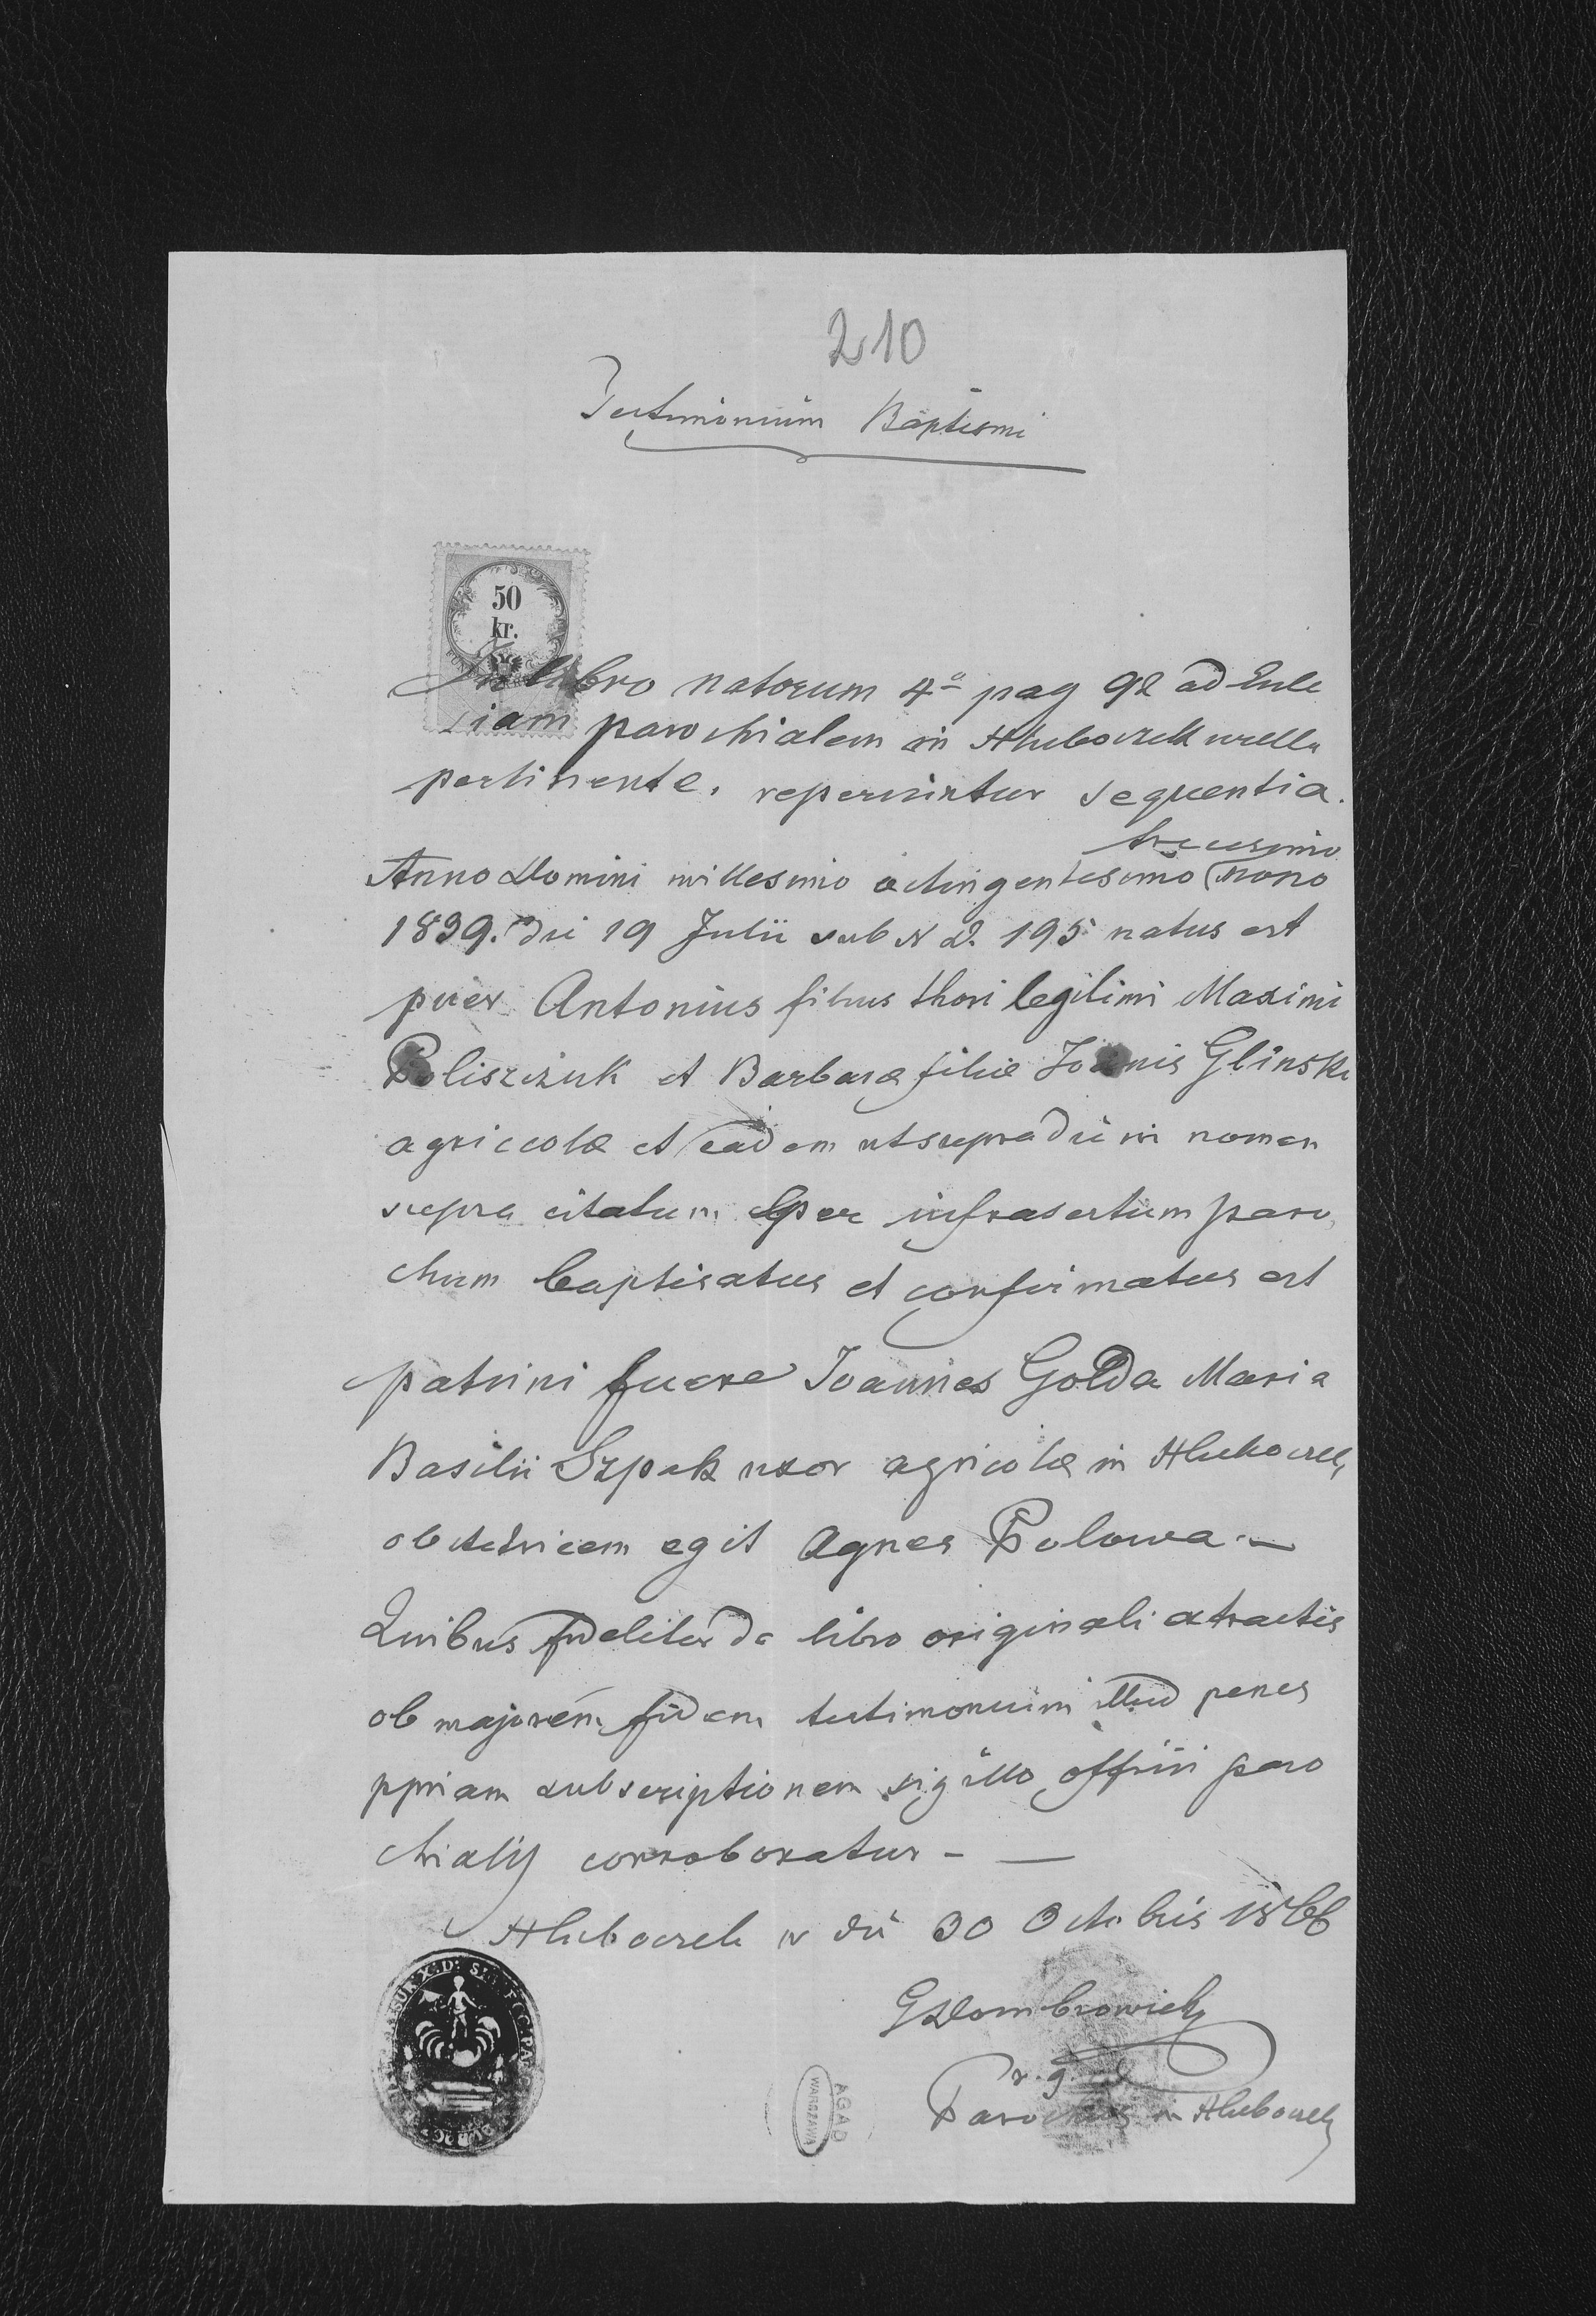 210
Testimonium Baptismi
50
kr.
In libro natorum 4ª pag 92 ad Eccle
siam parochialem in Hluboczek
pertinente, reperiuntur sequentia.
tricesimo
Anno Domini millesimo octingentesimo nono
1839. die 19 Julii sub N D. 195 natus est
puer Antonius filius thori legitimi Maximi
Poliszczuk et Barbaræ filiæ Joanis Glinski
agriccolæ et eadem ut supra die in nomen
supra citatum per infrasertum paro
chum baptisatus et confirmatus est
patrini fuere Joannes Golda Maria
Basilii Szpak uxor agricolæ in Hluboczek
obstetricem egit Agnes Polowa.—
Quibus fideliter de libro originali extractis
ob majorem fidem testimonium illud penes
ppriam subscriptionem sigillo officii paro
chialis corroboratur - —
Hluboczek die 30 Octobris 1866
GDombrowicki
r. g.
Parochus in Hluboczek
AGAD
WARSZAWA